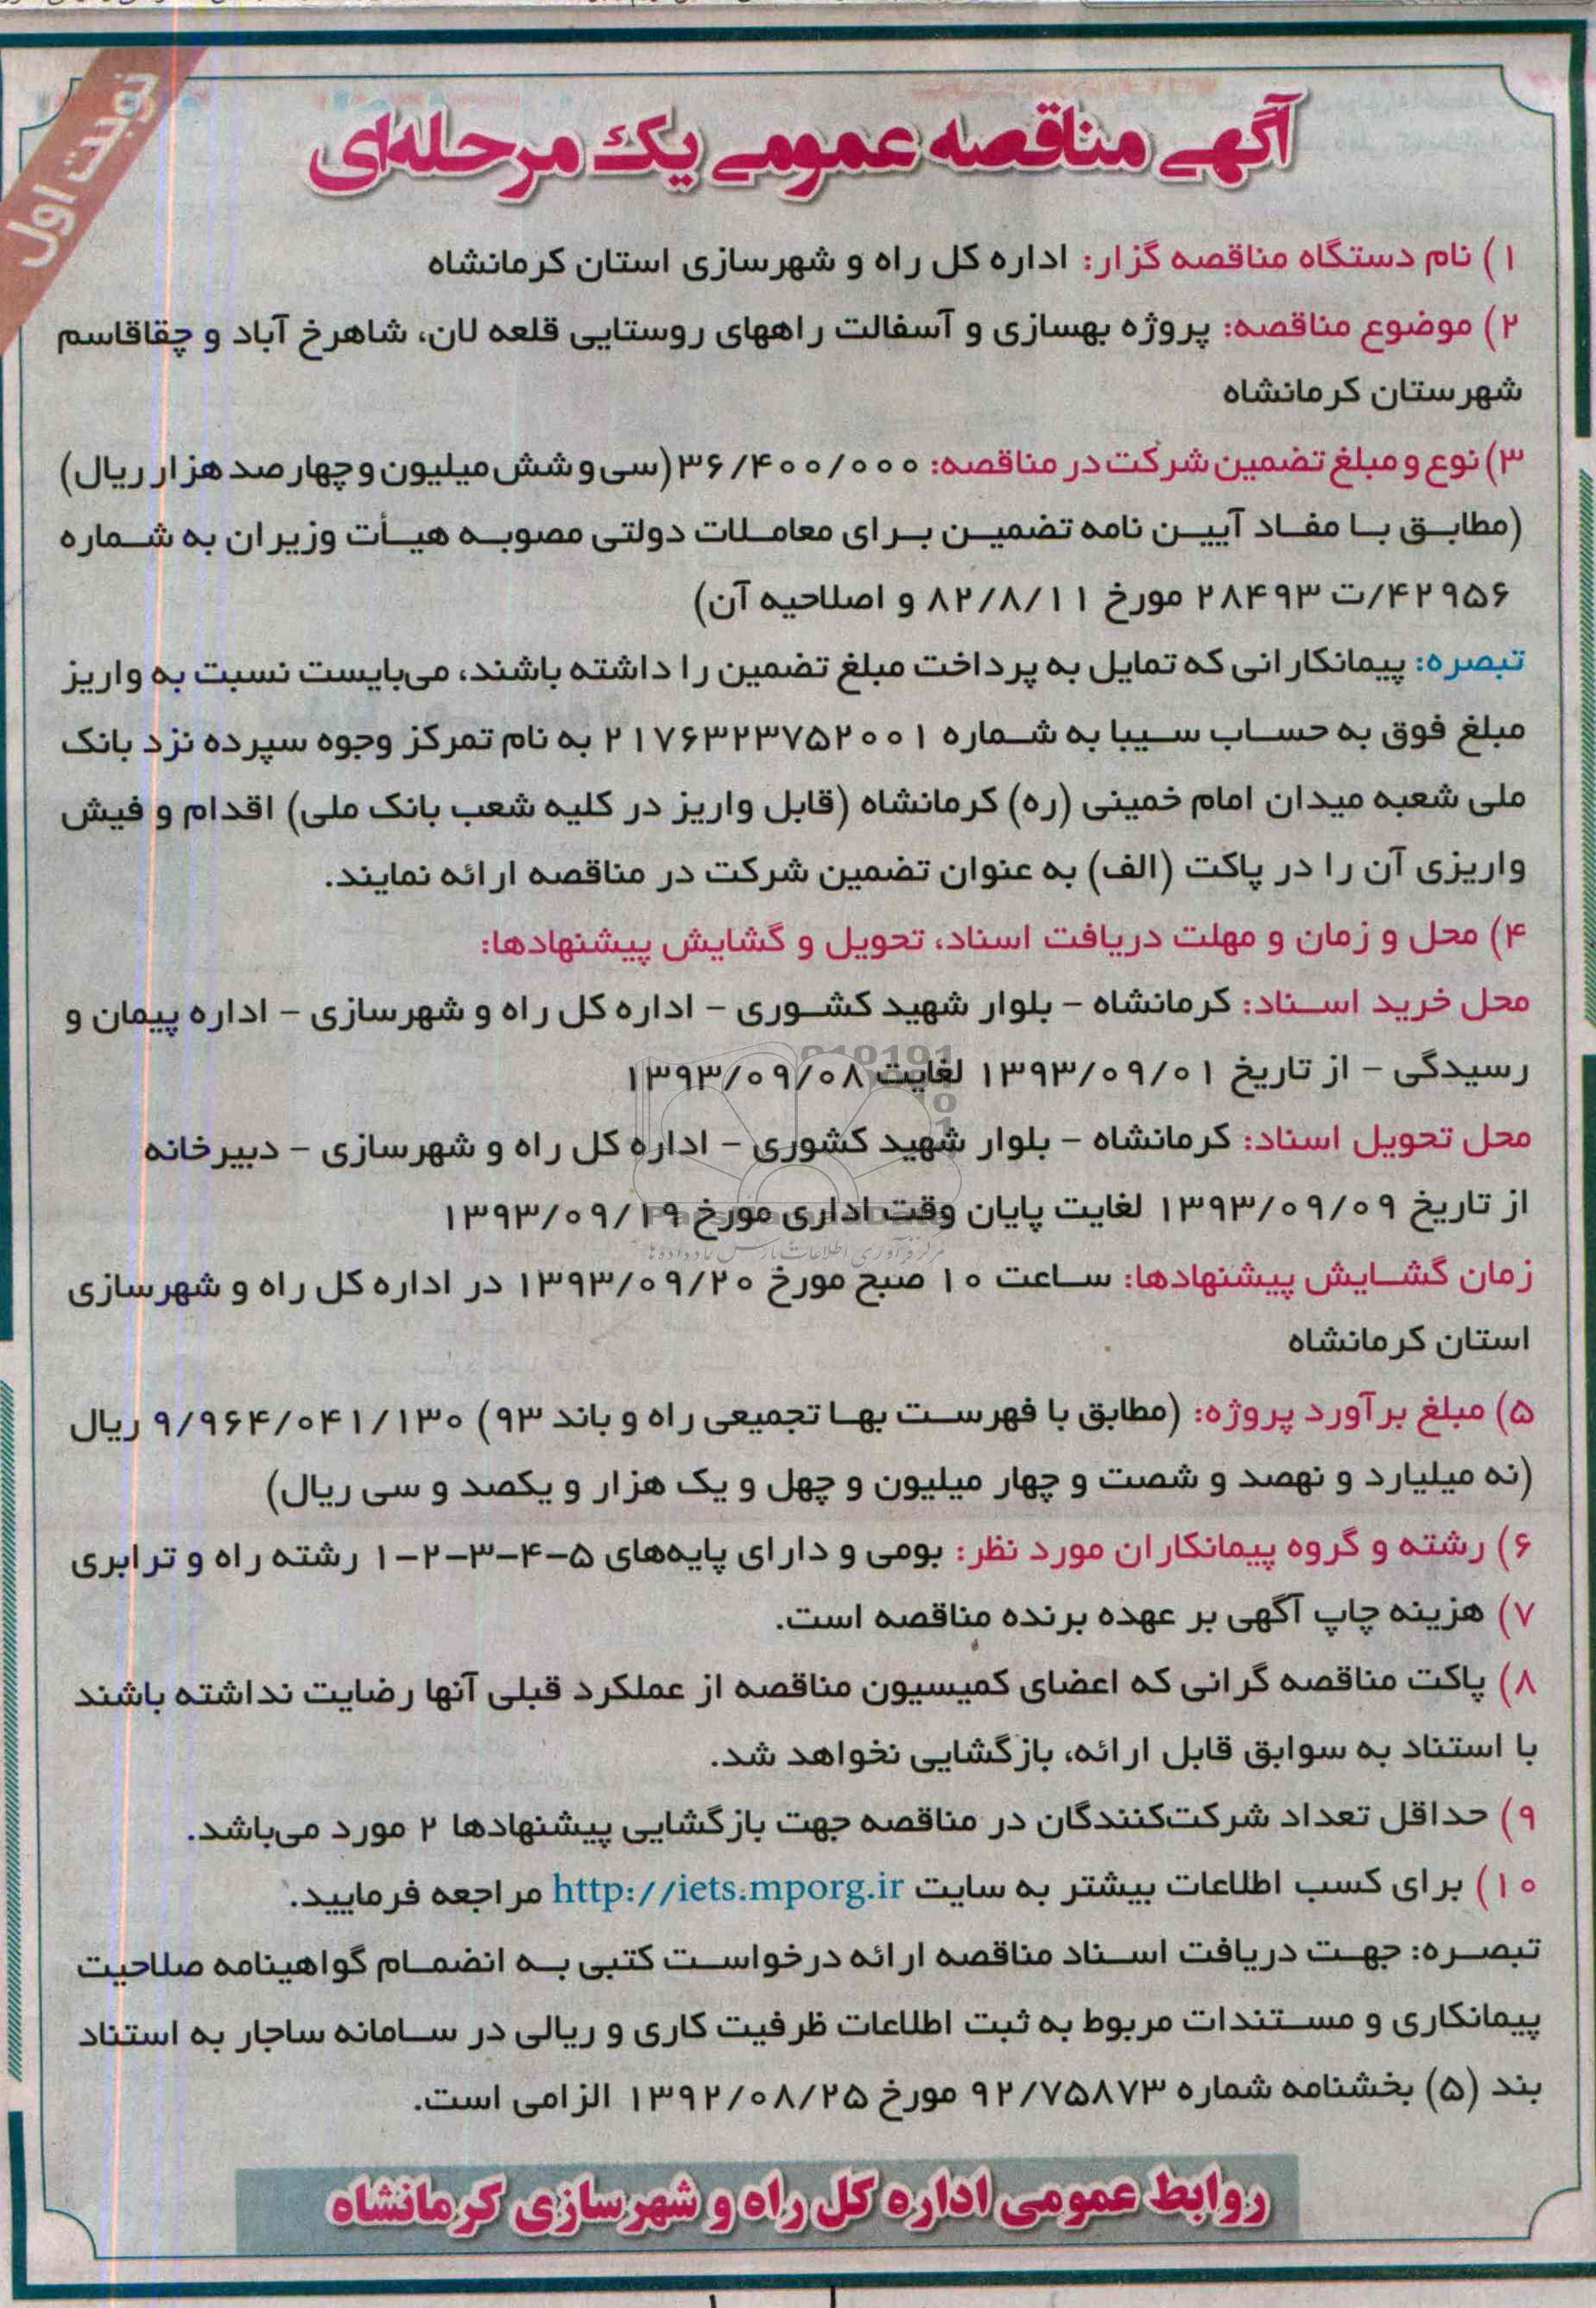 نوبت اول
آگهی مناقصه عمومی یک مرحله‌ای
۱) نام دستگاه مناقصه گزار: اداره کل راه و شهرسازی استان کرمانشاه
۲) موضوع مناقصه: پروژه بهسازی و آسفالت راههای روستایی قلعه لان، شاهرخ آباد و چقاقاسم
شهرستان کرمانشاه
۳) نوع و مبلغ تضمین شرکت در مناقصه: ۳۶/۴۰۰/۰۰۰ (سی و شش میلیون و چهار صد هزار ریال)
(مطابق با مفاد آیین نامه تضمین برای معاملات دولتی مصوبه هیأت وزیران به شماره
۴۲۹۵۶/ت ۲۸۴۹۳ مورخ ۸۲/۸/۱۱ و اصلاحیه آن)
تبصره: پیمانکارانی که تمایل به پرداخت مبلغ تضمین را داشته باشند، می‌بایست نسبت به واریز
مبلغ فوق به حساب سیبا به شماره ۲۱۷۶۳۲۳۷۵۲۰۰۱ به نام تمرکز وجوه سپرده نزد بانک
ملی شعبه میدان امام خمینی (ره) کرمانشاه (قابل واریز در کلیه شعب بانک ملی) اقدام و فیش
واریزی آن را در پاکت (الف) به عنوان تضمین شرکت در مناقصه ارائه نمایند.
۴) محل و زمان و مهلت دریافت اسناد، تحویل و گشایش پیشنهادها:
محل خرید اسناد: کرمانشاه – بلوار شهید کشوری – اداره کل راه و شهرسازی – اداره پیمان و
رسیدگی – از تاریخ ۱۳۹۳/۰۹/۰۱ لغایت ۱۳۹۳/۰۹/۰۸
محل تحویل اسناد: کرمانشاه – بلوار شهید کشوری – اداره کل راه و شهرسازی – دبیرخانه
از تاریخ ۱۳۹۳/۰۹/۰۹ لغایت پایان وقت اداری مورخ ۱۳۹۳/۰۹/۱۹
مرکز فرآوری اطلاعات پارس نماد داده ها
زمان گشایش پیشنهادها: ساعت ۱۰ صبح مورخ ۱۳۹۳/۰۹/۲۰ در اداره کل راه و شهرسازی
استان کرمانشاه
۵) مبلغ برآورد پروژه: (مطابق با فهرست بها تجمیعی راه و باند ۹۳) ۹/۹۶۴/۰۴۱/۱۳۰ ریال
(نه میلیارد و نهصد و شصت و چهار میلیون و چهل و یک هزار و یکصد و سی ریال)
۶) رشته و گروه پیمانکاران مورد نظر: بومی و دارای پایه‌های ۵-۴-۳-۲-۱ رشته راه و ترابری
۷) هزینه چاپ آگهی بر عهده برنده مناقصه است.
۸) پاکت مناقصه گرانی که اعضای کمیسیون مناقصه از عملکرد قبلی آنها رضایت نداشته باشند
با استناد به سوابق قابل ارائه، بازگشایی نخواهد شد.
۹) حداقل تعداد شرکت‌کنندگان در مناقصه جهت بازگشایی پیشنهادها ۲ مورد می‌باشد.
۱۰) برای کسب اطلاعات بیشتر به سایت http://iets.mporg.ir مراجعه فرمایید.
تبصره: جهت دریافت اسناد مناقصه ارائه درخواست کتبی به انضمام گواهینامه صلاحیت
پیمانکاری و مستندات مربوط به ثبت اطلاعات ظرفیت کاری و ریالی در سامانه ساجار به استناد
بند (۵) بخشنامه شماره ۹۲/۷۵۸۷۳ مورخ ۱۳۹۲/۰۸/۲۵ الزامی است.
روابط عمومی اداره کل راه و شهرسازی کرمانشاه